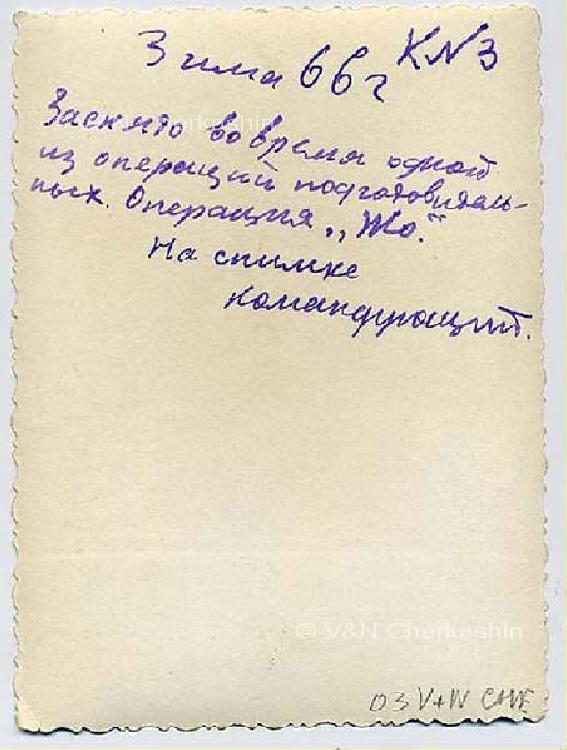 Зима 66 г КN3
Заснято во время одной
из операций подготовитель-
ных. Операция „Жо."
На снимке
командующий.
© V&N Cherkashin
03 V+N CAVE